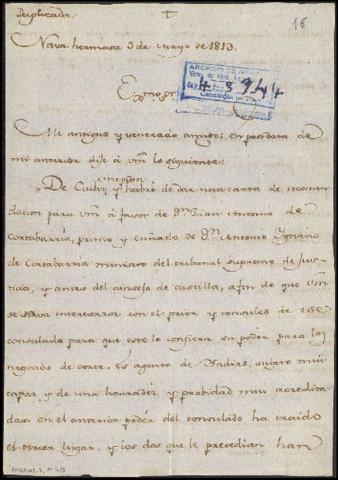 Duplicada
+
16
Nava hermosa 3 de Mayo de 1813.
Exmo. Sr
ARCHIVO
44
Mi antiguo y venerado amigo: en postdata de
mi anterior dije à Vm lo siguiente:
"De Cadiz y habré de dar una carta de recomen
dacion para Vm à favor de Dn. Juan Antonio de
Cortabarria, primo y cuñado de Dn. Antonio Ygnacio
de Cortabarria ministro del tribunal supremo de Jus-
ticia, y antes del consejo de castilla, a fin de que Vm
se sirva interesarse con el prior y consules de ese
consulado para que este le confiera su poder para los
negocios de corte. Es agente de Yndias, sujeto mui
capaz y de una honradez y probidad mui acredita
das. en el anterior poder del consulado ha traido
el tercer lugar, y los dos que le precedian han